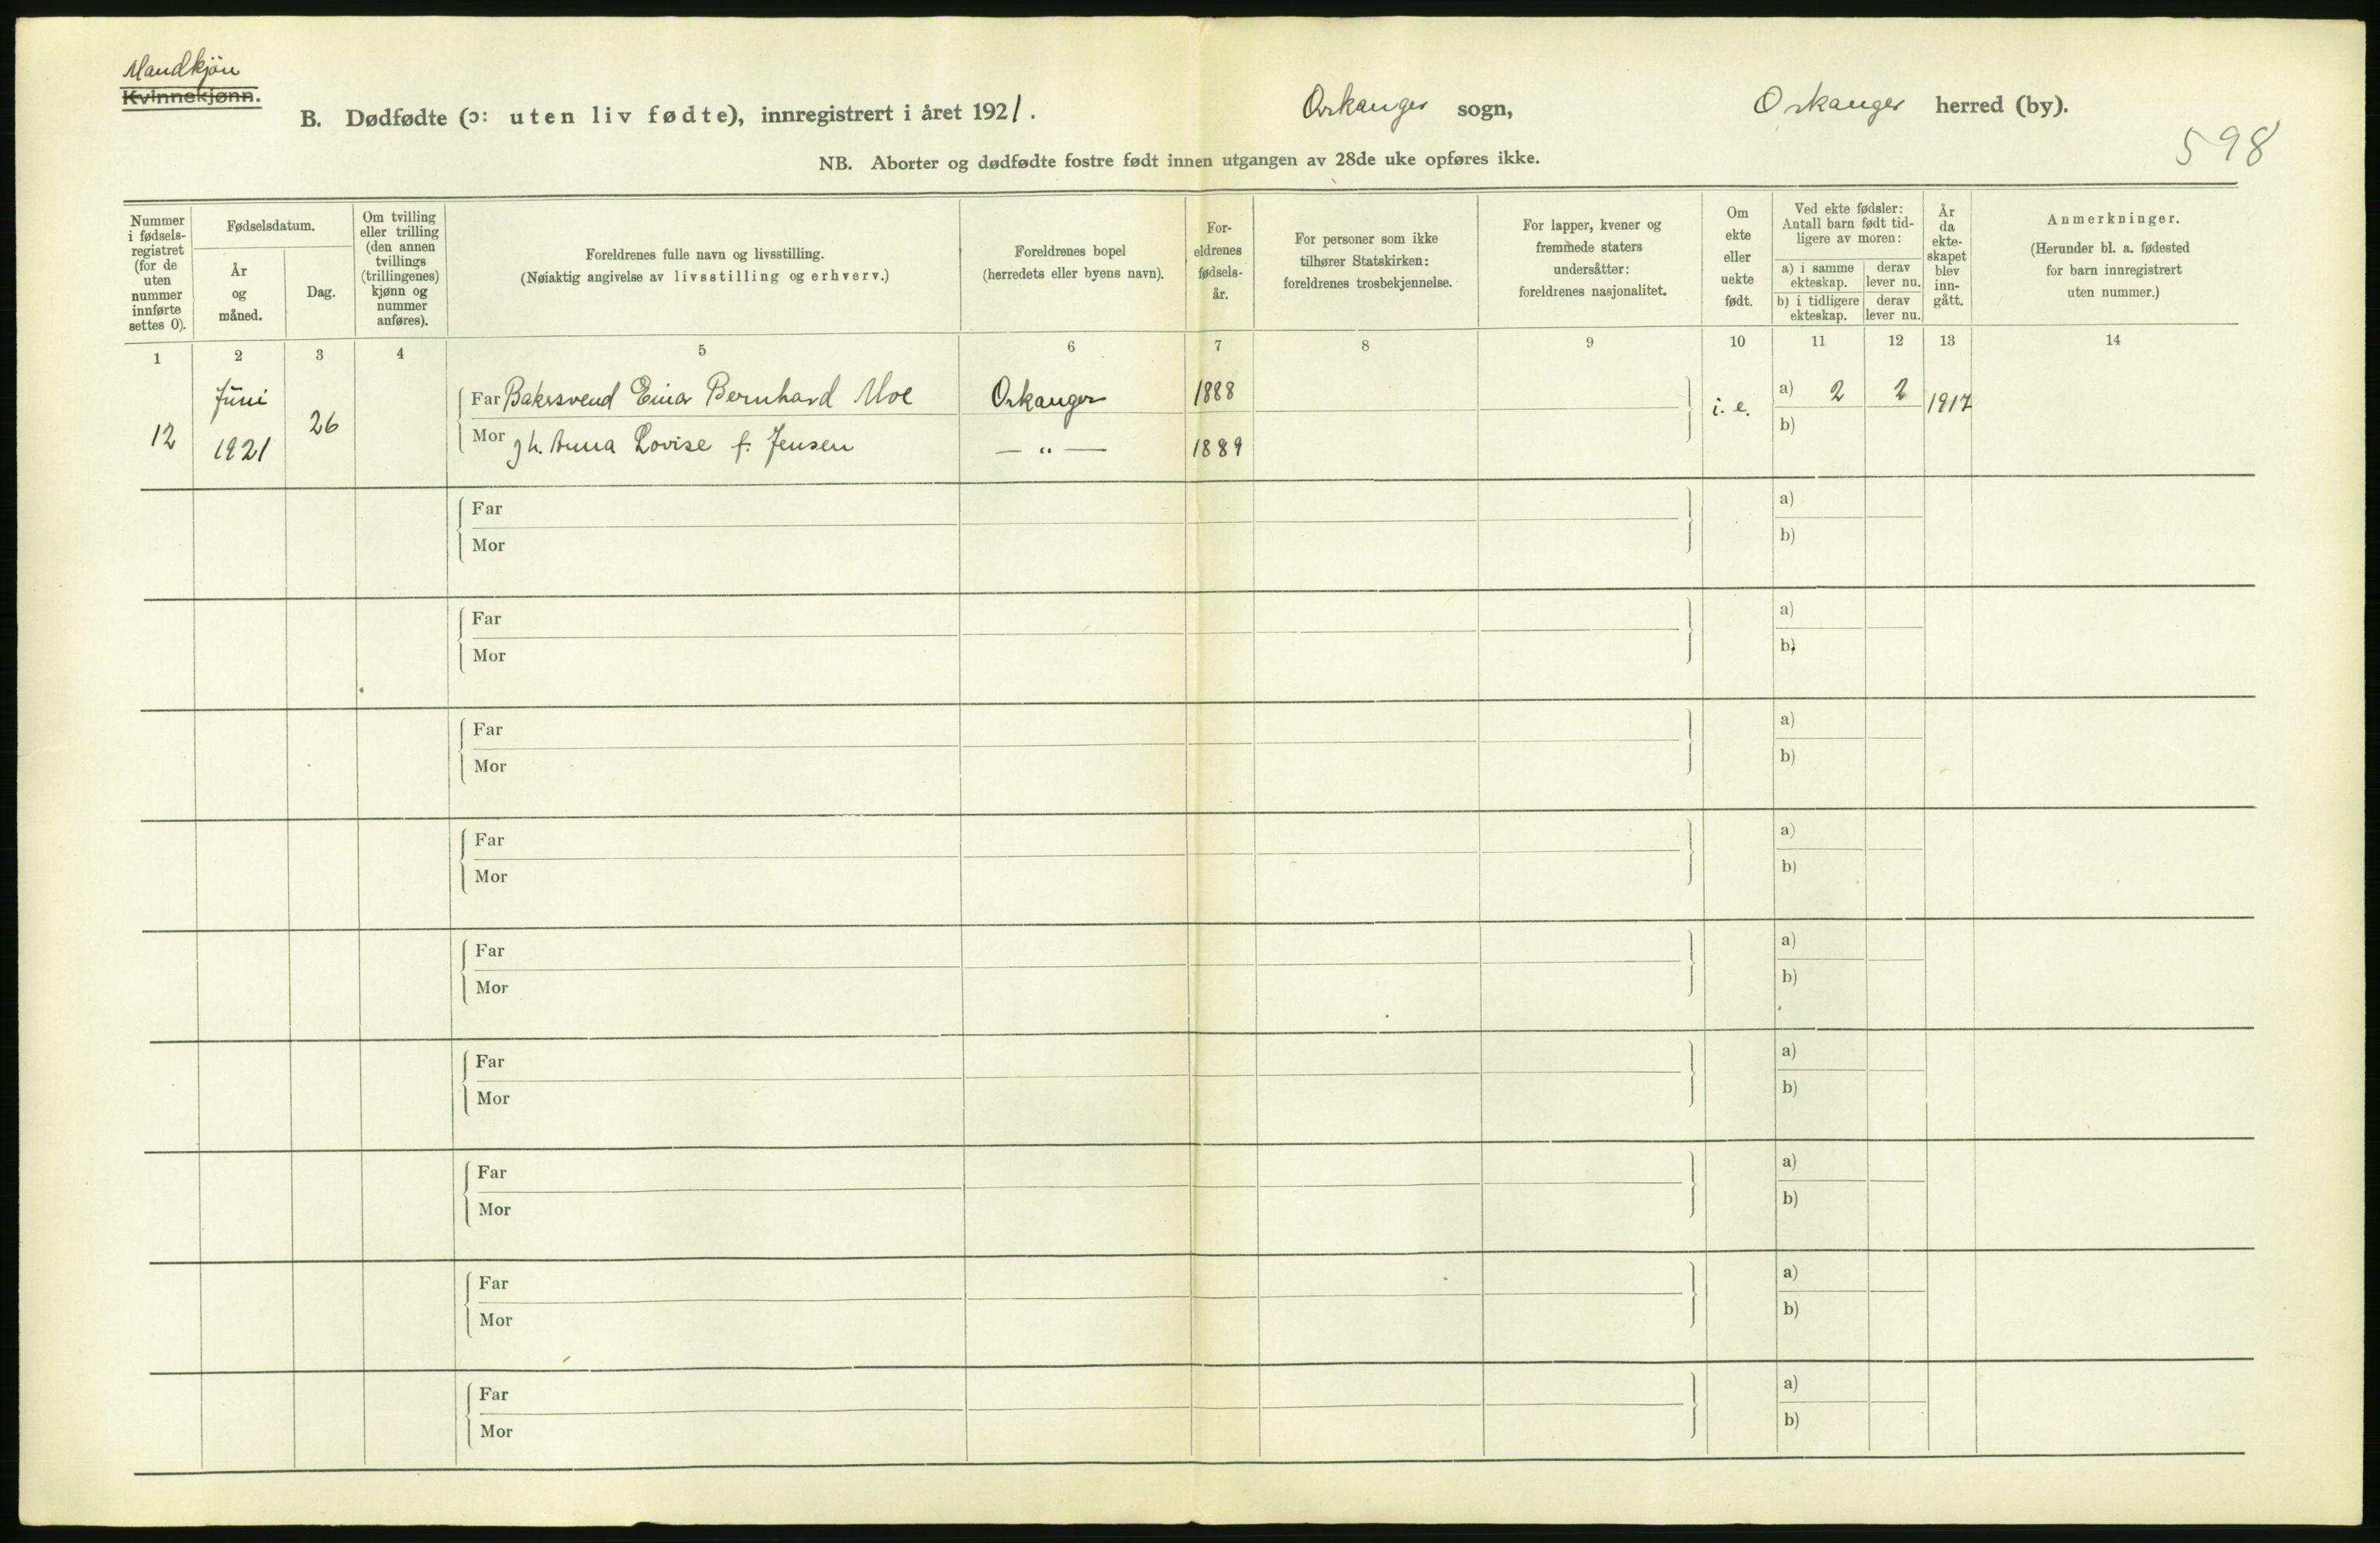 Mandkjön
Kvinnekjønn.
B. Dødfødte (ɔ: uten liv fødte), innregistrert i året 1921. Orkanger sogn, Orkanger herred (by).
598
NB. Aborter og dødfødte fostre født innen utgangen av 28de uke opføres ikke.
Nummer
i fødsels-
registret
(for de
uten
nummer
innførte
settes 0).
Fødselsdatum.
År
og
måned.
Dag.
Om tvilling
eller trilling
(den annen
tvillings
(trillingenes)
kjønn og
nummer
anføres).
Foreldrenes fulle navn og livsstilling.
(Nøiaktig angivelse av livsstilling og erhverv.)
Foreldrenes bopel
(herredets eller byens navn).
For-
eldrenes
fødsels-
år.
For personer som ikke
tilhører Statskirken:
foreldrenes trosbekjennelse.
For lapper, kvener og
fremmede staters
undersåtter:
foreldrenes nasjonalitet.
Om
ekte
eller
uekte
født.
Ved ekte fødsler:
Antall barn født tid-
ligere av moren:
a) i samme
ekteskap.
derav
lever nu.
b) i tidligere
ekteskap.
derav
lever nu.
År
da
ekte-
skapet
blev
inn-
gått.
Anmerkninger.
(Herunder bl. a. fødested
for barn innregistrert
uten nummer.)
1 2 3 4 5 6 7 8 9 10 11 12 13 14
12
Juni
1921
26
Far Bakersvend Einar Bernhard Moe Orkanger 1888
Mor Anna Lovise f. Jensen — „ — 1889
a) 2 2 1917
i. e.
b)
Far a)
Mor b)
Far a)
Mor b)
Far a)
Mor b)
Far a)
Mor b)
Far a)
Mor b)
Far a)
Mor b)
Far a)
Mor b)
Far a)
Mor b)
Far a)
Mor b)